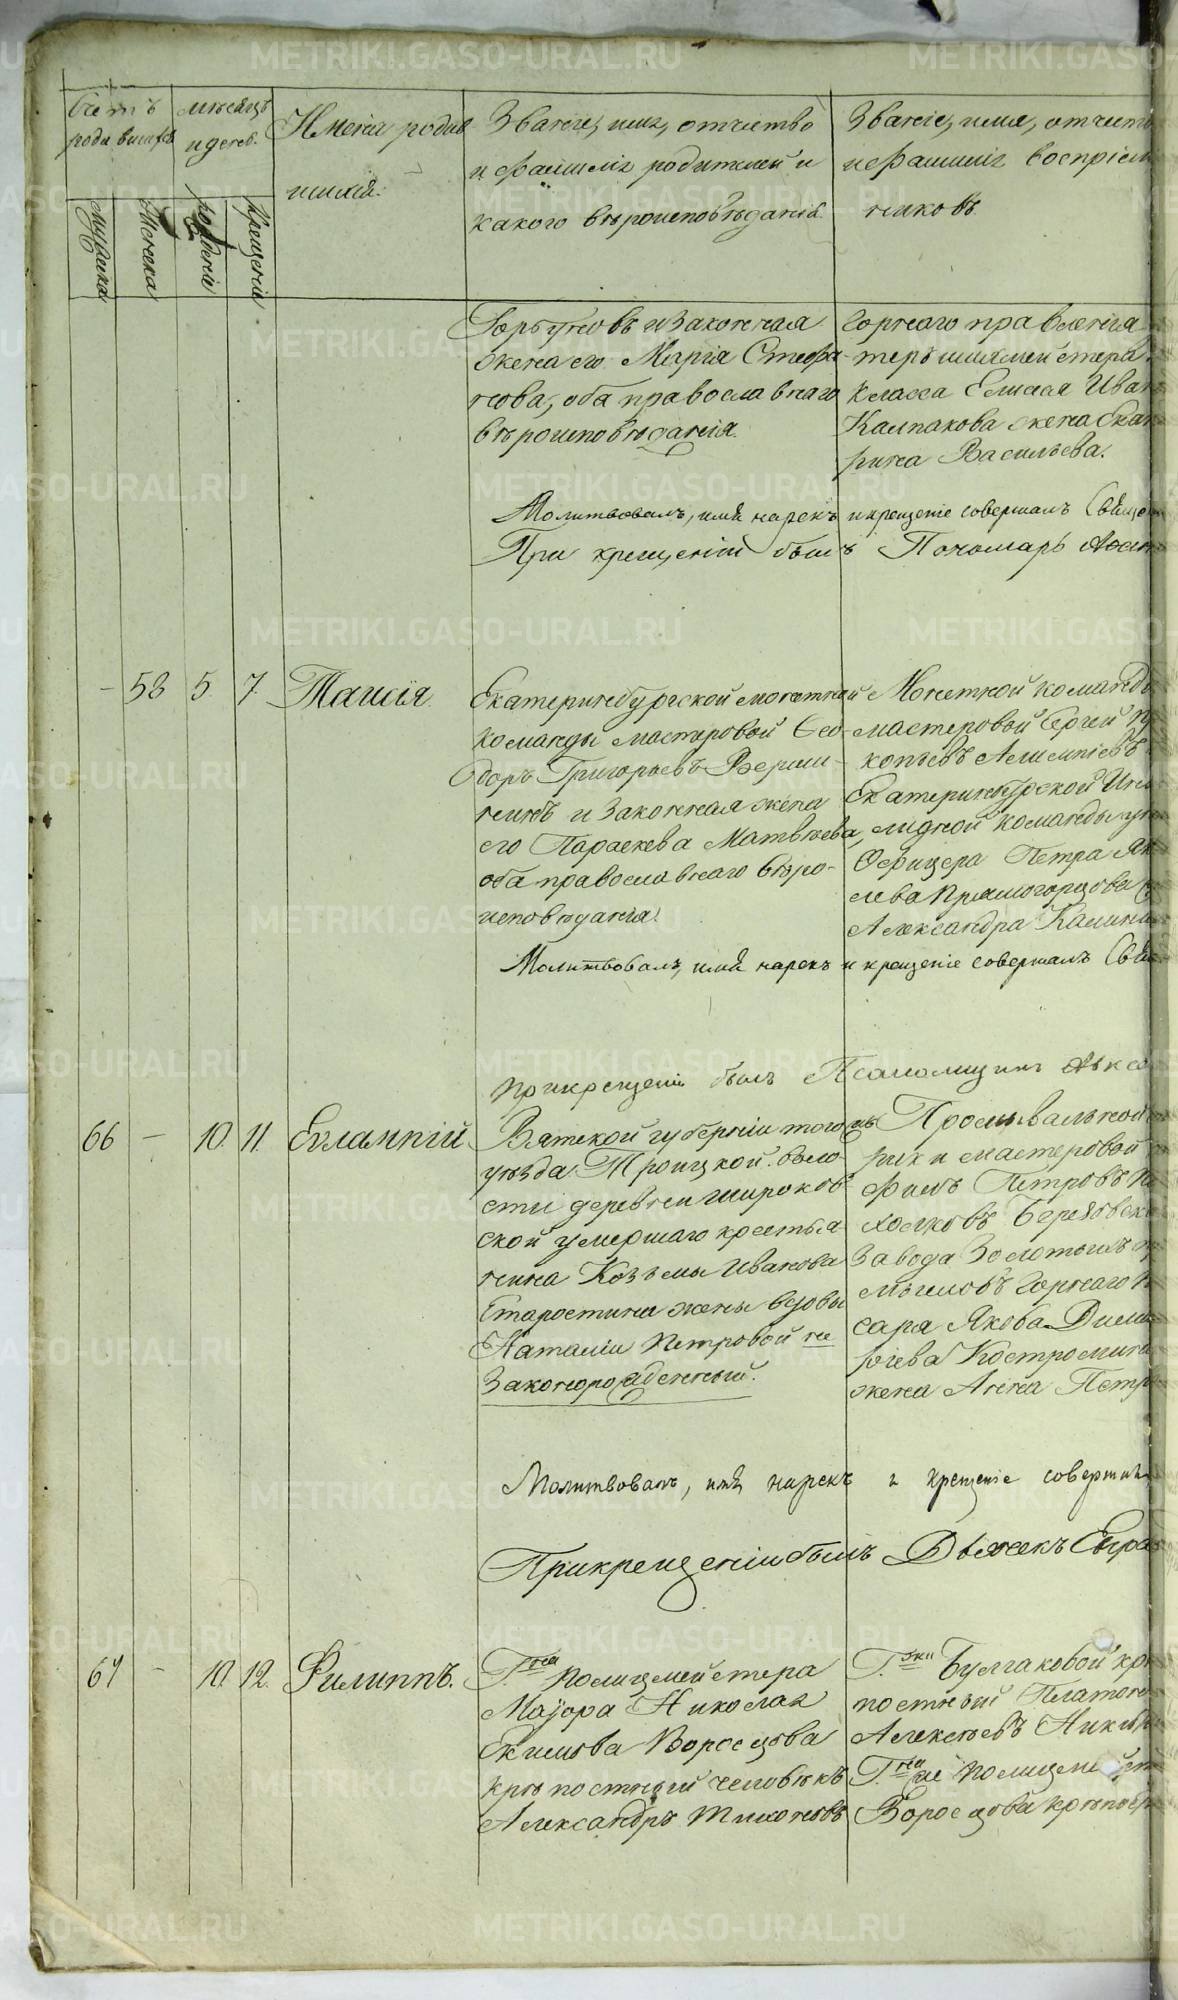 METRIKI.GASO-URAL.RU
Счетъ
родившихся
мѣсяцъ
и день.
Имена родив
шихся.
Званіе, имя, отчество
и фамилія родителей и
какого вѣроисповѣданія.
Званіе, имя, отчеств
и фамилія воспріем
никовъ
Мужеска
Женска
рожденія
Крещенія
Горбуновъ и законная
жена его Марія Стефа-
нова, оба православнаго
вѣроисповѣданія.
Горнаго правленія
класса Елисея Иван
Калпакова жена Екат
рина Васильева.
Молитвовалъ, имя нарекъ и крещеніе совершалъ Свящ
При крещеніи былъ Пономарь
- 58 5. 7. Таисія.
Екатеринбургской монетной
команды мастеровой Ѳео-
доръ Григорьевъ Верши-
нинъ и законная жена
его Параскева Матвѣева,
оба православнаго вѣро-
исповѣданія.
Монетной команды
мастеровой Сергей Пр
копьевъ Алимпіевъ
Екатеринбургской Инва
лидной команды ун
Офицера Петра Як
лева Прямогорцова
Александра Калини
Молитвовалъ, имя нарекъ и крещеніе совершалъ Свя
При крещеніи былъ Псаломщикъ Алекс
66 - 10. 11. Евлампій.
Вятской губерніи того
уѣзда Троицкой воло-
сти деревни Широков-
ской умершаго крестья-
нина Козьмы Иванова
Старостина жены вдовы
Наталіи Петровой не
законорожденный.
Промывальной
рики мастеровой
фимъ Петровъ
Березовск
завода Золотыхъ пр
мысловъ Горнаго Пи
саря Якова Дими
ріева Костромина
жена Анна Петр
Молитвовалъ, имя нарекъ и крещеніе совершилъ
При крещеніи былъ Дьячекъ Евгра
67 - 10. 12. Филиппъ.
Г.на Полицмейстера
Маіора Николая
Екимова Воросцова
крѣпостный человѣкъ
Александръ Тихоновъ
Г.жи Булгаковой крѣ
постный Платонъ
Алексѣевъ Никифо
Г.на Полицмейст
Воросцова крѣпостн